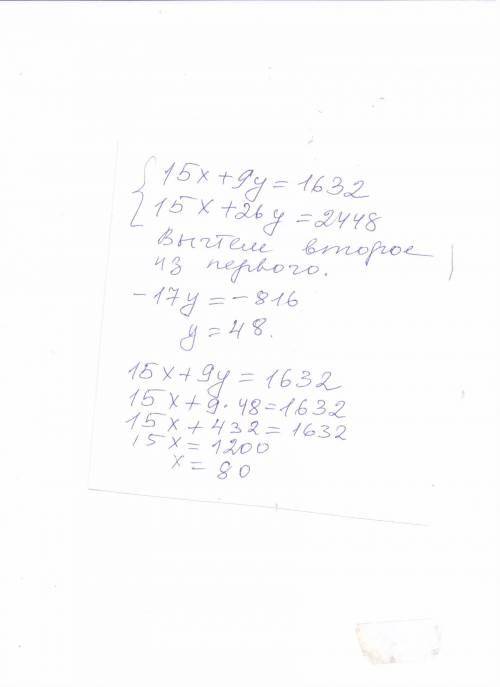 15x+9y=1632
15x+26y=2448
Вычтем второе
из первого.
-17y=-816
y=48.
15x+9y=1632
15x+9·48=1632
15x+432=1632
15x=1200
x=80